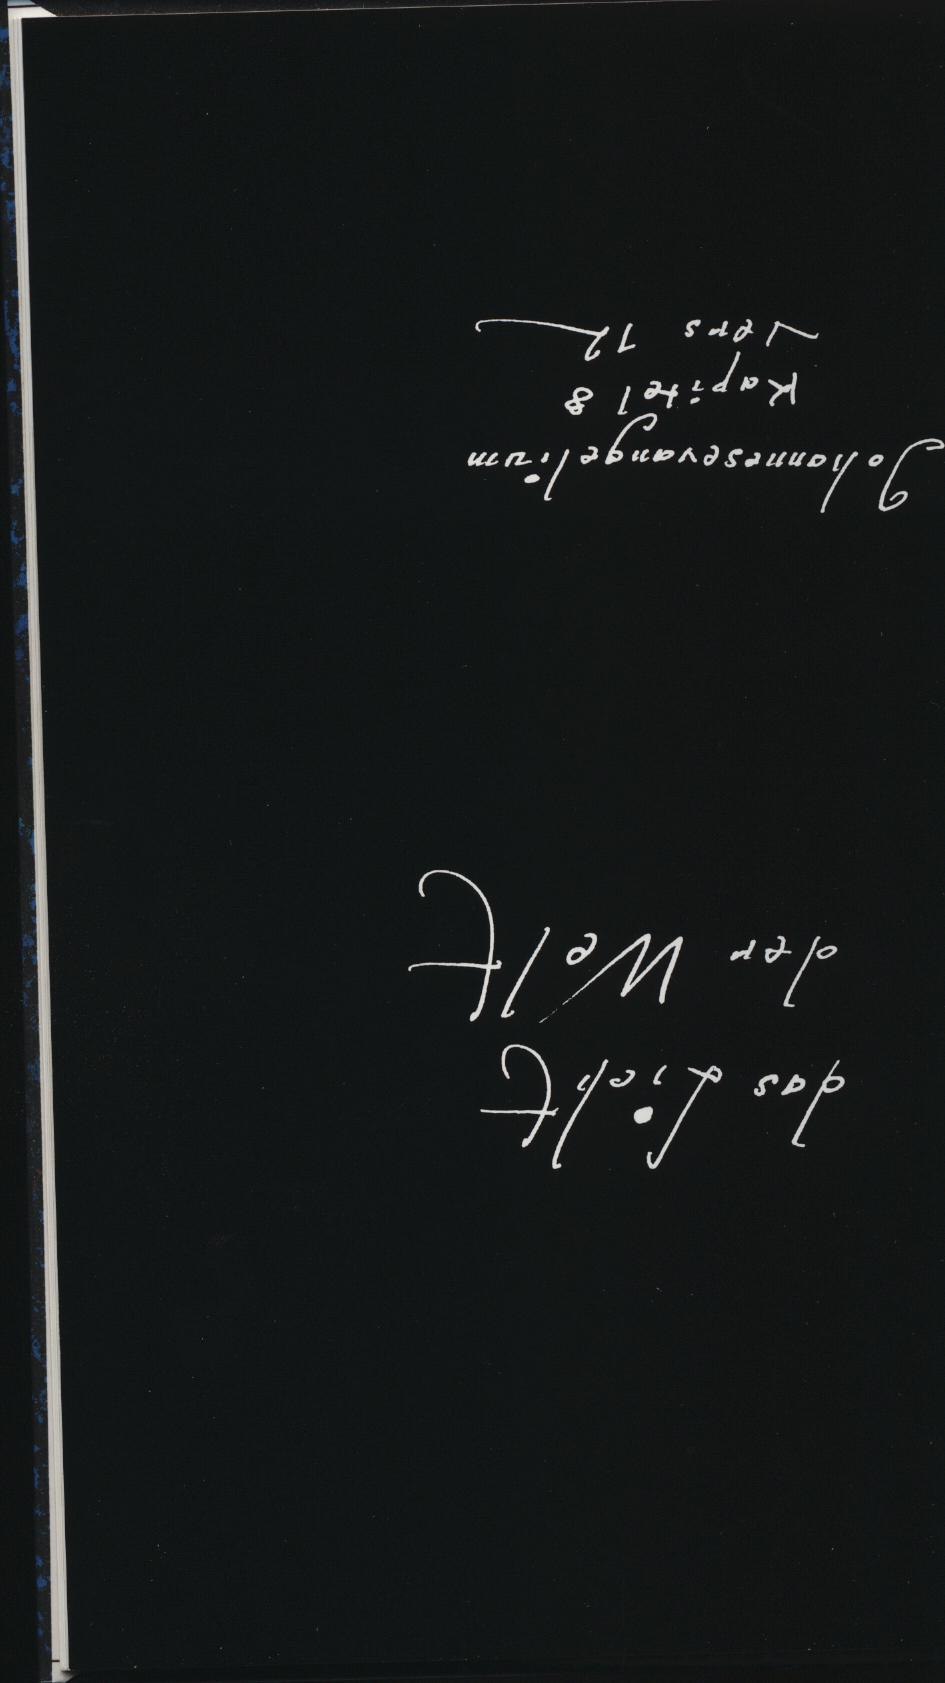 das Licht
der Welt
Johannesevangelium
Kapitel 8
Vers 12